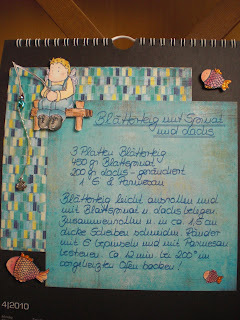 Blätterteig mit Spinat
und Lachs
3 Platten Blätterteig
450 gr Blattspinat
200 gr Lachs - geräuchert
1 Ei & Parmesan
Blätterteig leicht ausrollen und
mit Blattspinat u Lachs belegen.
Zusammenrollen u. in ca. 1.5 cm
dicke Scheiben schneiden. Ränder
mit Ei bepinseln und mit Parmesan
bestreuen. Ca. 12 min. bei 200° im
vorgeheizten Ofen backen!
4|2010